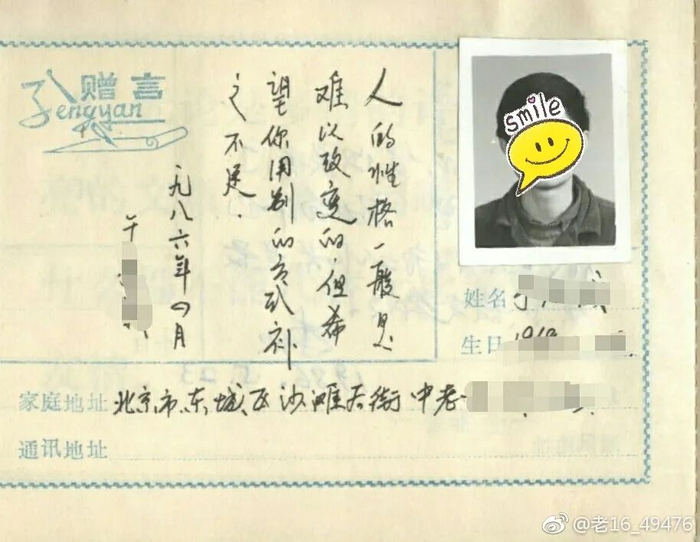 赠言
Zengyan
人的性格一般是
难以改变的但希
望你用别的方式补
之不足.
一九八六年四月
smile
姓名
生日
家庭地址 北京市东城区沙滩后街中老
通讯地址
@老16_49476